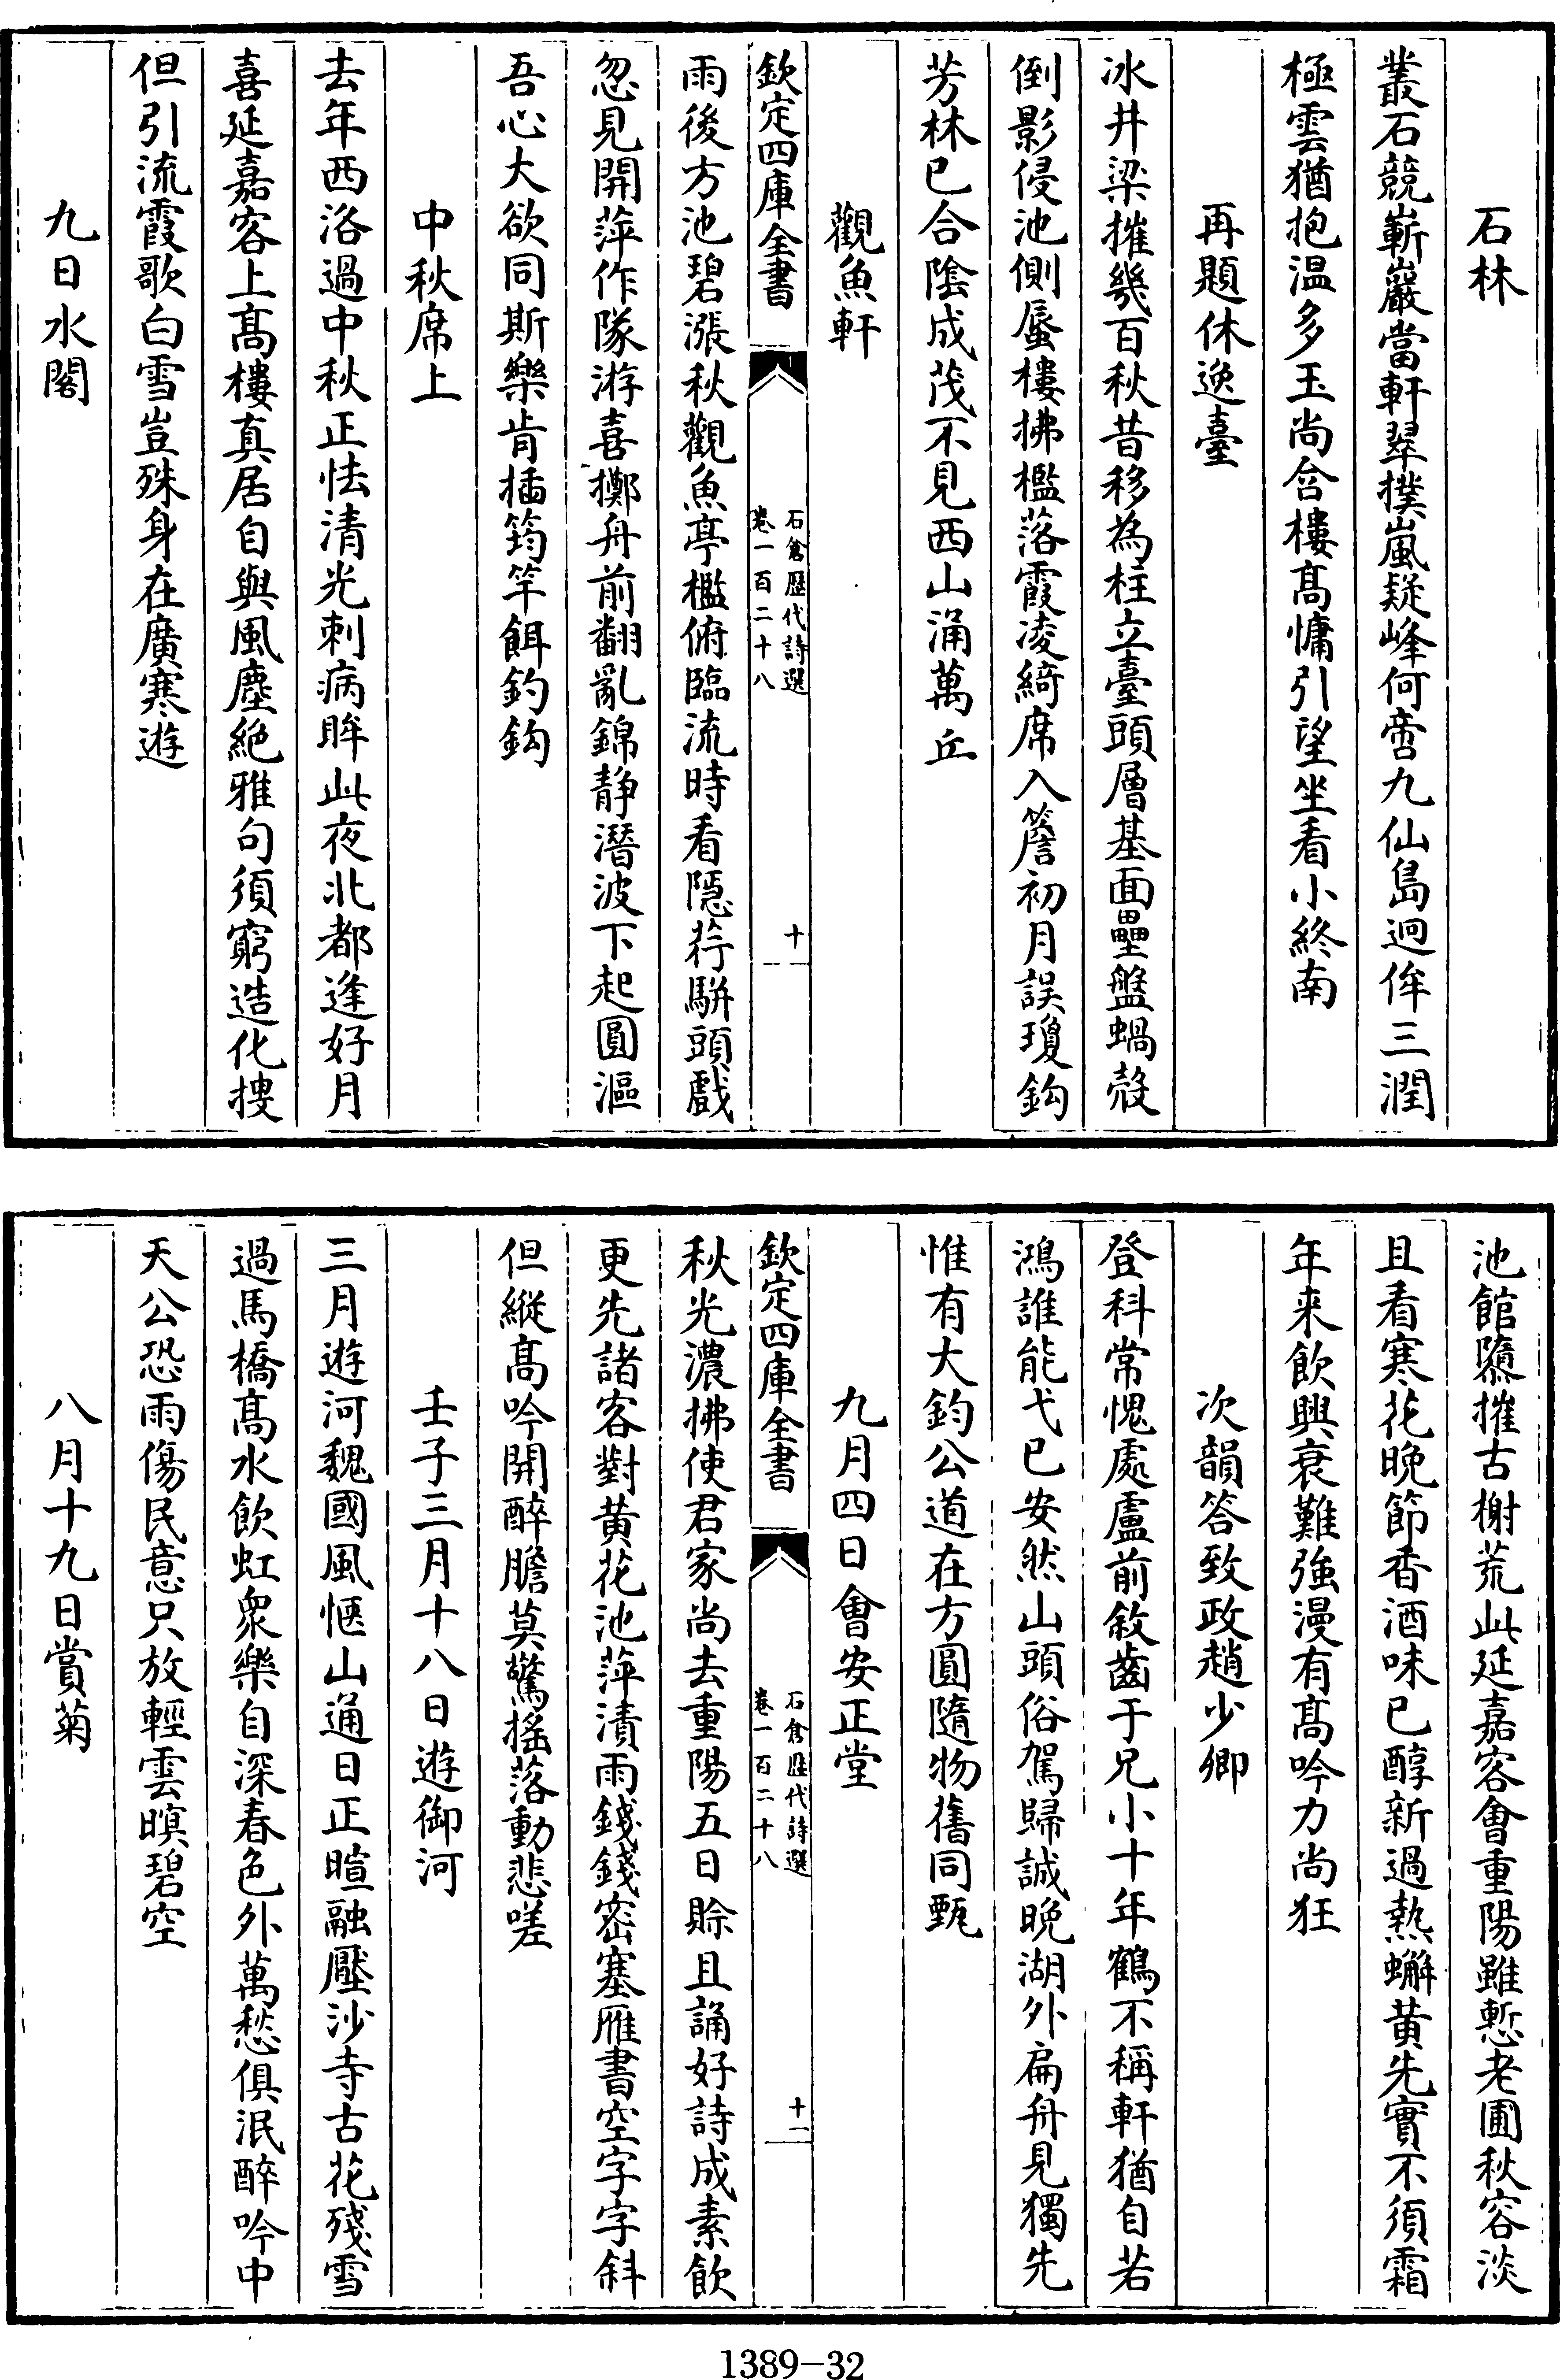 石林
叢石競嶄巖當軒翠撲嵐疑峰何啻九仙島迥侔三潤
極雲猶抱温多玉尚含樓髙慵引望坐看小終南
再題休逸臺
冰井梁摧幾百秋昔移為柱立臺頭層基面壘盤蝸殻
倒影侵池側蜃樓拂檻落霞凌綺席入簷初月誤瓊鈎
芳林已合陰成茂不見西山涌萬丘
觀魚軒
欽定四庫全書
石倉歴代詩選
卷一百二十八
十
雨後方池碧漲秋觀魚亭檻俯臨流時看隠荇駢頭戲
忽見開萍作隊游喜擲舟前翻亂錦静潛波下起圓漚
吾心大欲同斯樂肯插筠竿餌釣鈎
中秋席上
去年西洛過中秋正怯清光刺病眸此夜北都逢好月
喜延嘉客上髙樓真居自與風塵絶雅句須窮造化搜
但引流霞歌白雪豈殊身在廣寒遊
九日水閣
池館隳摧古榭荒此延嘉客會重陽雖慙老圃秋容淡
且看寒花晚節香酒味已醇新過熱蠏黄先實不須霜
年来飲興衰難強漫有髙吟力尚狂
次韻答致政趙少卿
登科常愧處盧前敘齒于兄小十年鶴不稱軒猶自若
鴻誰能弋已安然山頭俗駕歸誠晚湖外扁舟見獨先
惟有大鈞公道在方圓隨物舊同甄
九月四日會安正堂
欽定四庫全書
石倉歴代詩選
卷一百二十八
十一
秋光濃拂使君家尚去重陽五日賒且誦好詩成素飲
更先諸客對黄花池萍漬雨錢錢宻塞雁書空字字斜
但縱髙吟開醉膽莫驚揺落動悲嗟
壬子三月十八日遊御河
三月遊河魏國風惬山通日正暄融壓沙寺古花殘雪
過馬橋髙水飲虹衆樂自深春色外萬愁俱泯醉吟中
天公恐雨傷民意只放輕雲暝碧空
八月十九日賞菊
1389-32